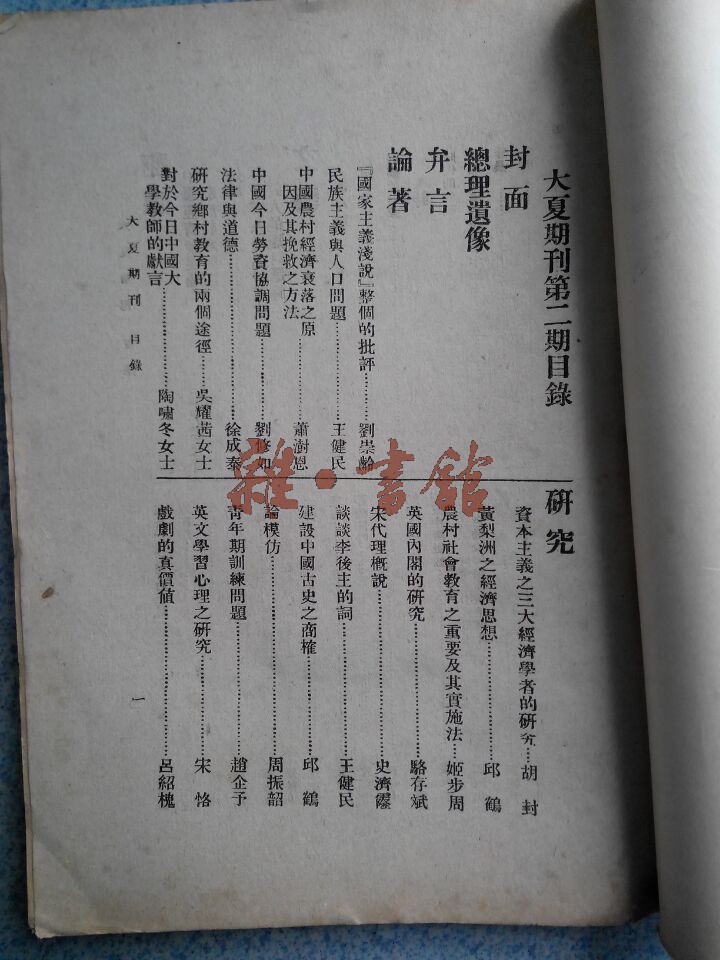 大夏期刊第二期目錄
封面
總理遺像
弁言
論著
『國家主義淺說』整個的批評……劉崇齡
民族主義與人口問題……王健民
中國農村經濟衰落之原
因及其挽救之方法……蕭澍恩
中國今日勞資協調問題……劉修如
法律與道德……徐成泰
研究鄉村教育的兩個途徑……吳耀茜女士
對於今日中國大
學教師的獻言……陶嘯冬女士
研究
資本主義之三大經濟學者的研究……胡封
黃梨洲之經濟思想……邱鶴
農村社會教育之重要及其實施法……姬步周
英國內閣的研究……駱存斌
宋代理概說……史濟靉
談談李後主的詞……王健民
建設中國古史之商榷……邱鶴
論模仿……周振韶
青年期訓練問題……趙企予
英文學習心理之研究……宋恪
戲劇的真價值……呂紹槐
大夏期刊 目錄
一
雜·書館